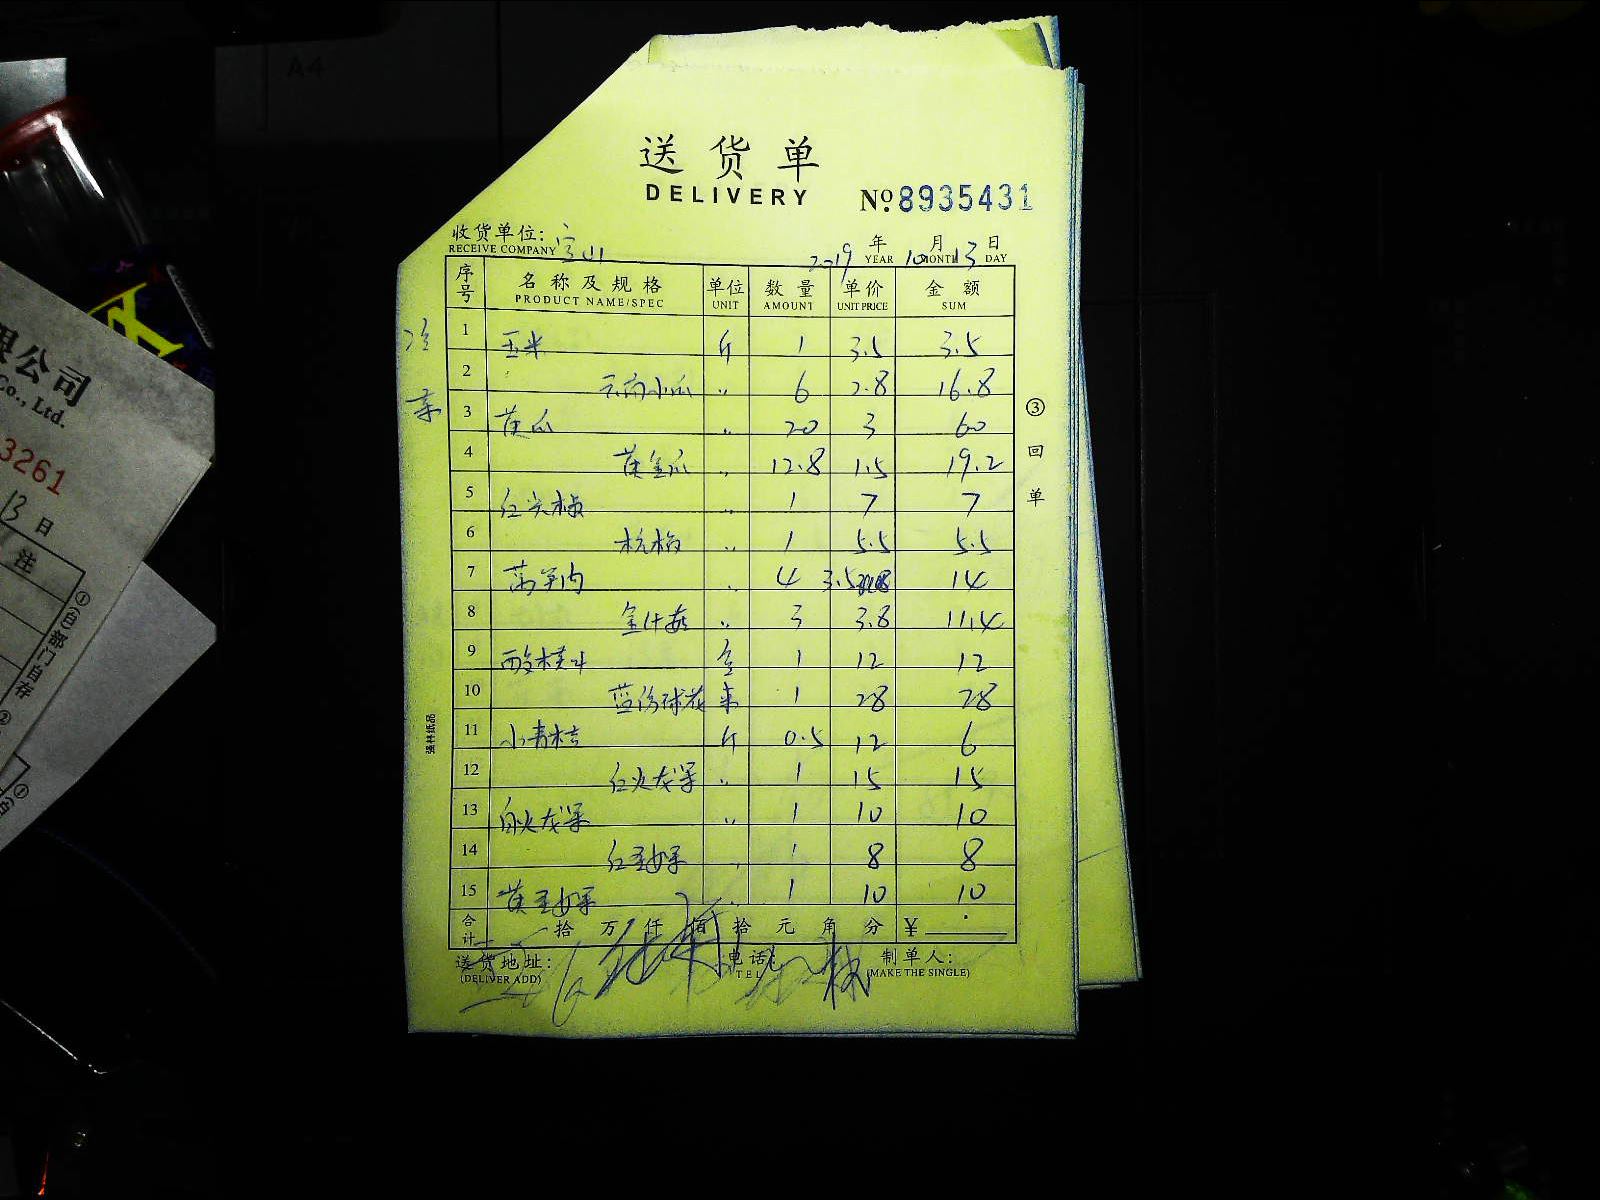 A4
送货单
DELIVERY
№ 8935431
收货单位:
RECEIVE COMPANY 宝山
2019 年 10 月 13 日
YEAR MONTH DAY
序号 名称及规格 单位 数量 单价 金额
PRODUCT NAME/SPEC UNIT AMOUNT UNIT PRICE SUM
1 玉米 斤 1 3.5 3.5
2 云南小瓜 〃 6 2.8 16.8
3 黄瓜 〃 20 3 60
4 黄金瓜 〃 12.8 1.5 19.2
5 红尖椒 〃 1 7 7
6 杭椒 〃 1 5.5 5.5
7 莴笋肉 〃 4 3.5 14
8 金针菇 〃 3 3.8 11.4
9 酸桔汁 1 12 12
10 1 28 28
11 小青桔 斤 0.5 12 6
12 红火龙果 〃 1 15 15
13 白火龙果 〃 1 10 10
14 红圣女果 〃 1 8 8
15 黄圣女果 〃 1 10 10
合计 拾 万 仟 佰 拾 元 角 分 ¥
送货地址:
(DELIVER ADD)
电话:
TEL
制单人:
(MAKE THE SINGLE)
③回单
强林纸品
限公司
Co., Ltd.
3261
13 日
注
①(白)部门自存
②
①(白)